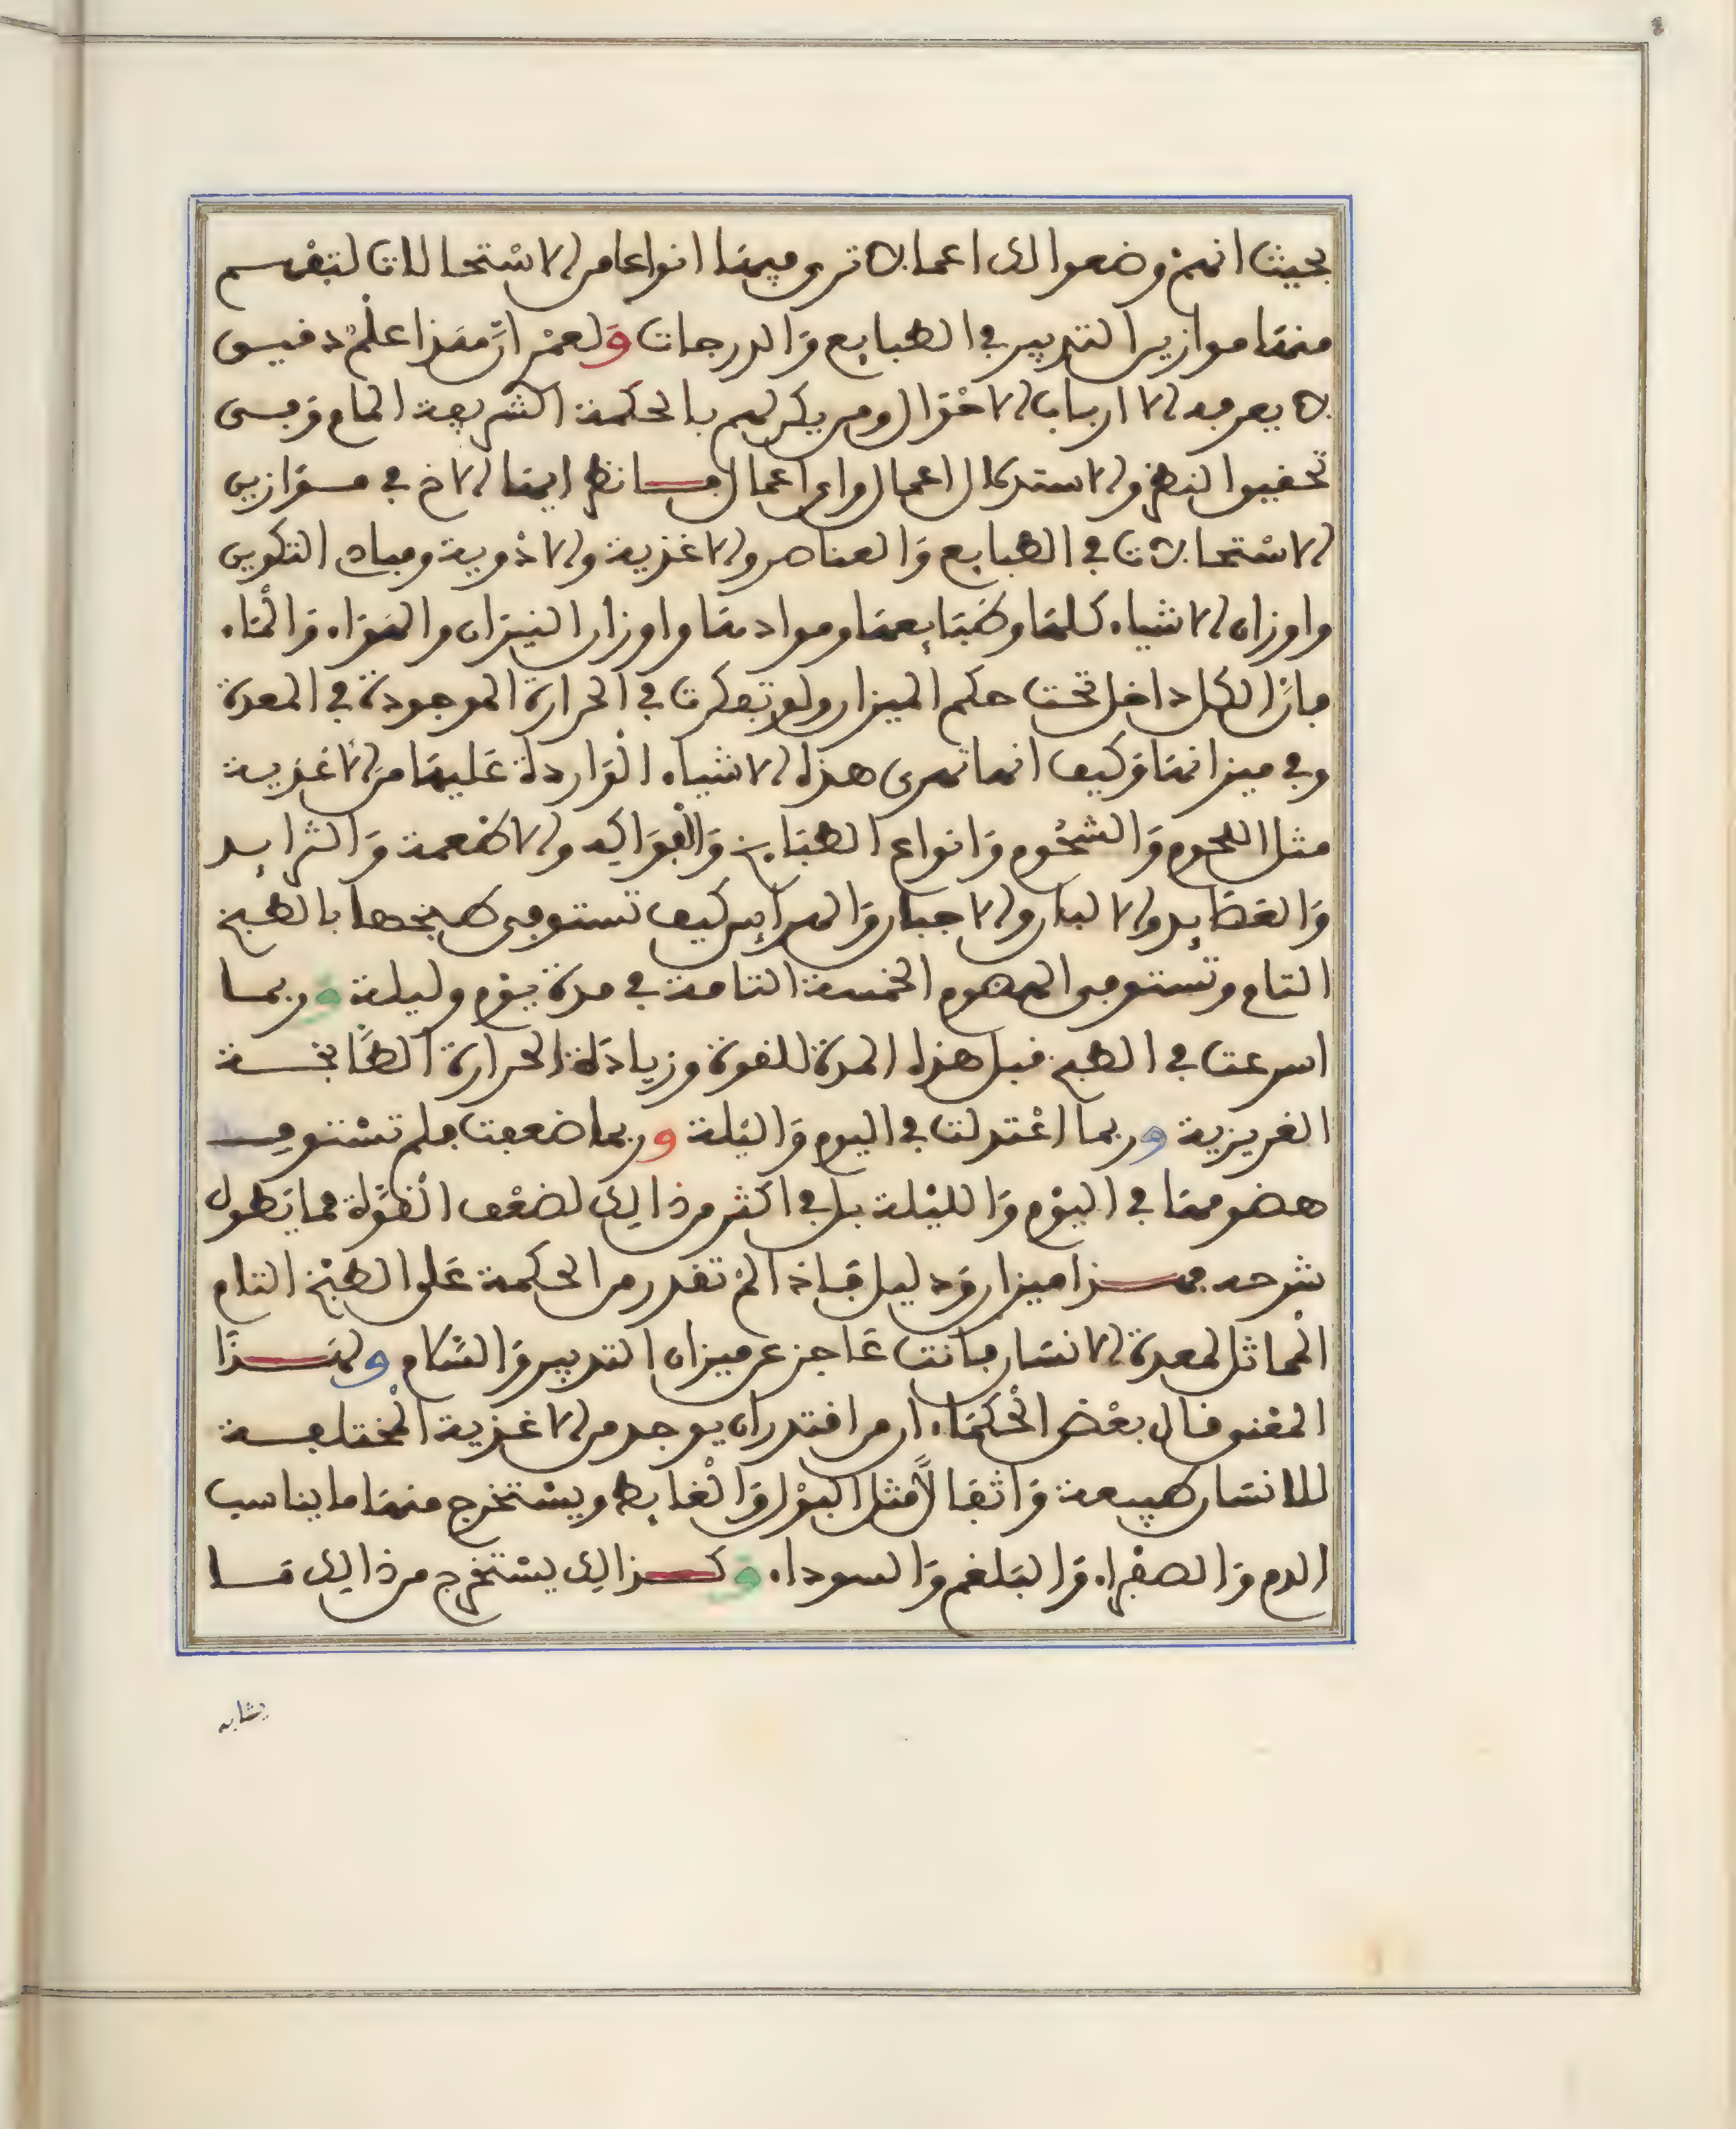 بحيث انهم وضعوا لك اعمالا ترى فيها انواعا من الاستحالات لتقسم
منها موازين التدبير في الطبايع وَالدرجات وَلعمْر انَّ هَذا علمٌ دقيق
لا يعرفه الا ارباب الاحْوَال ومن يكن لهم بالحكمة الشريعة المام وَفي
تحقيق النظر والاستدلال اعمال واي اعمال فانظر ايها الاخ في موَازين
الاسْتحالات في الطبايع وَالعناصر والاغذية والادْوية ومياه التكوين
واوزان الاشياء كلهَا وطبَايعهَا وموادهَا واوزان النيرَان والهوَاء وَالمَاء
فانَّ الكل داخل تحت حكم الميزان ولو تفكرت في الحرارة الموجودة في المعدة
وفي ميزانهَا وَكيف انها تهرى هذه الاشياء الوَاردة عَليهَا منَ الاغذية
مثل اللحوم وَالشحُوم وَانواع الطبَايخ وَالْفوَاكه والاطعمة وَالثرايد
وَالعصَايد والالبان والاجبان وَالهرايس كيف تستوفى طبخها بالطبخ
التام وتستوفى الهضوم الخمسة التامة في مدة يَوْم وليلة وَربما
اسرعت في الطبخ قبل هذه المدة للقوة وزيادَة الحرارة الطَّابخة
الغريزية وربما اعْتدلت في اليوم وَاليْلة وربما ضعفت فلم تسْتوف
هضومهَا في اليوْم وَالليْلة بل في اكثر من ذالك لضعْف الْقوَّة مما يَطول
شرحه فهذا ميزان وَدليل فَاذا لمْ تقدر من الحكمة عَلى الطبْخ التام
الْمماثل لمعدة الانسَان فانت عَاجز عن ميزان التدبير وَالسَّلام ولهَذَا
المعْنى قال بعْض الْحكمَاء ان من اقتدر ان يوجد من الاغذية الْمختلفة
للانسَان طبيعة وَاثقالاً مثل البوْل وَالْغايط ويسْتخرج منهَا ما يناسب
الدم وَالصفْراء وَالبَلغم وَالسوداء وَكذالك يسْتخرج من ذالك مَا
يشابه